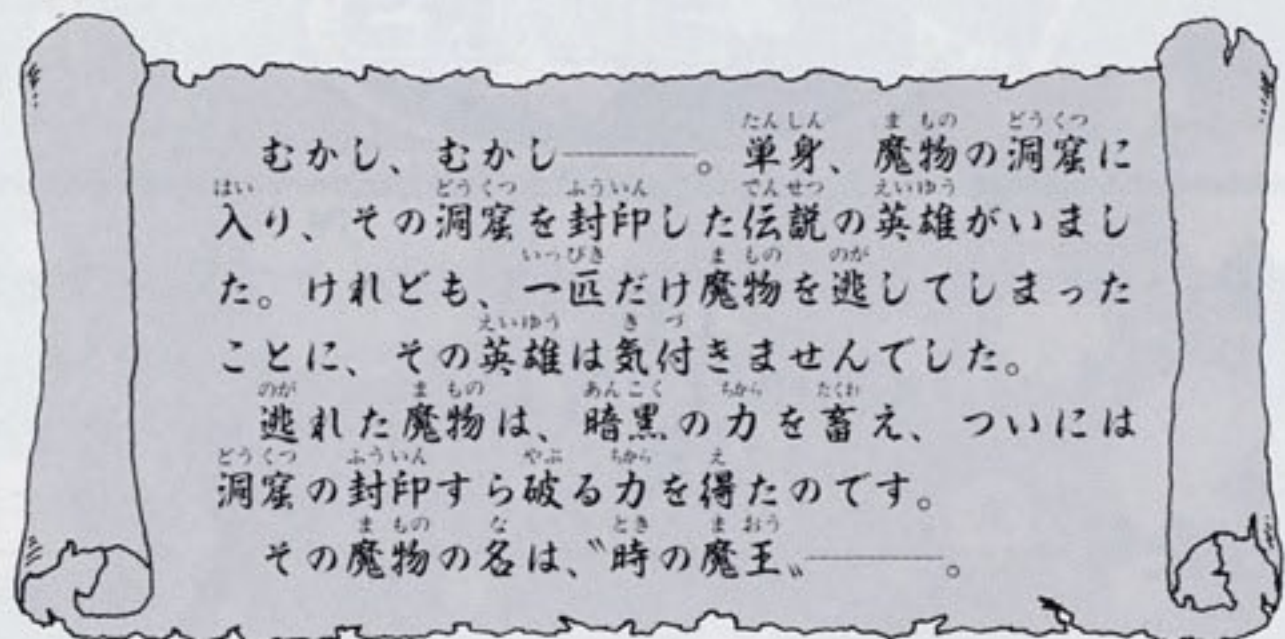 むかし、むかし————。単身、魔物の洞窟に
入り、その洞窟を封印した伝説の英雄がいまし
た。けれども、一匹だけ魔物を逃してしまった
ことに、その英雄は気付きませんでした。
逃れた魔物は、暗黒の力を畜え、ついには
洞窟の封印すら破る力を得たのです。
その魔物の名は、〝時の魔王〟————。